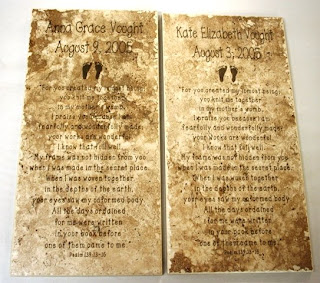 Anna Grace Vought
August 9, 2005
"For you created my inmost being;
you knit me together
in my mother's womb.
I praise you because I am
fearfully and wonderfully made;
your works are wonderful,
I know that full well.
My frame was not hidden from you
when I was made in the secret place.
When I was woven together
in the depths of the earth,
your eyes saw my unformed body.
All the days ordained
for me were written
in your book before
one of them came to me."
Psalm 139:13-16
Kate Elizabeth Vought
August 3, 2005
"For you created my inmost being;
you knit me together
in my mother's womb.
I praise you because I am
fearfully and wonderfully made;
your works are wonderful,
I know that full well.
My frame was not hidden from you
when I was made in the secret place.
When I was woven together
in the depths of the earth,
your eyes saw my unformed body.
All the days ordained
for me were written
in your book before
one of them came to me."
Psalm 139:13-16